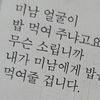 미남 얼굴이
밥 먹여 주냐고요
무슨 소립니까
내가 미남에게 밥을
먹여줄 겁니다.